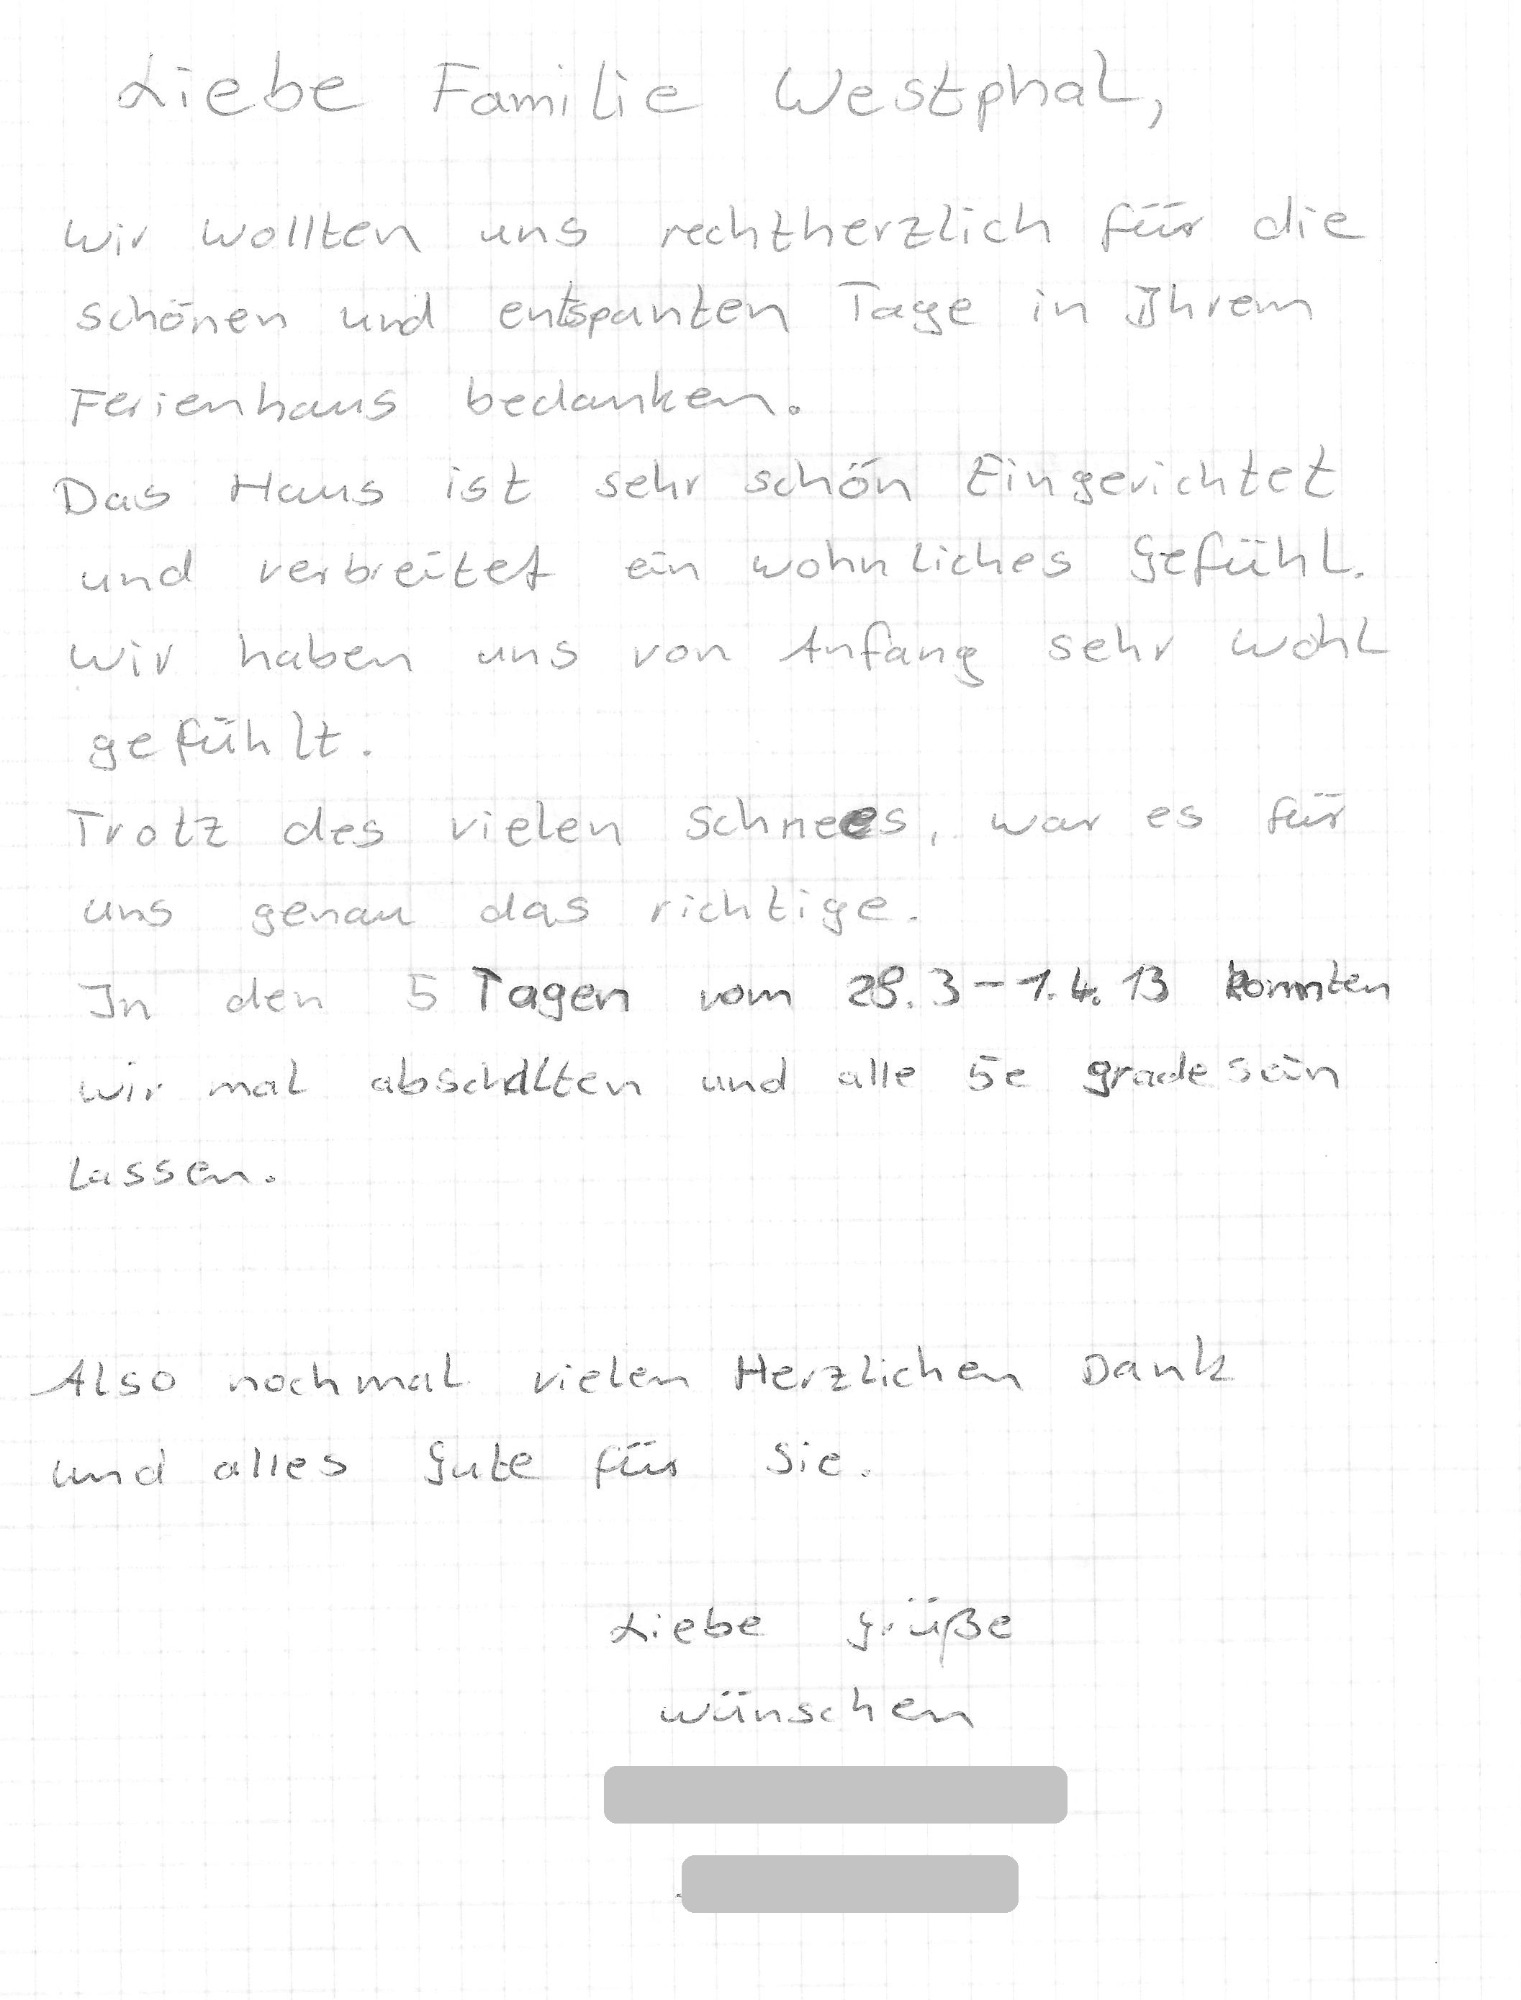 Liebe Familie Westphal,
Wir wollten uns rechtherzlich für die
schönen und entspanten Tage in Ihrem
Ferienhaus bedanken.
Das Haus ist sehr schön Eingerichtet
und verbreitet ein wohnliches Gefühl.
Wir haben uns von Anfang sehr wohl
gefühlt.
Trotz des vielen Schnees, war es für
uns genau das richtige.
In den 5 Tagen vom 28.3-1.4.13 konnten
wir mal abschalten und alle 5e grade sein
Lassen.
Also nochmal vielen Herzlichen Dank
und alles Gute für Sie.
Liebe Grüße
wünschen